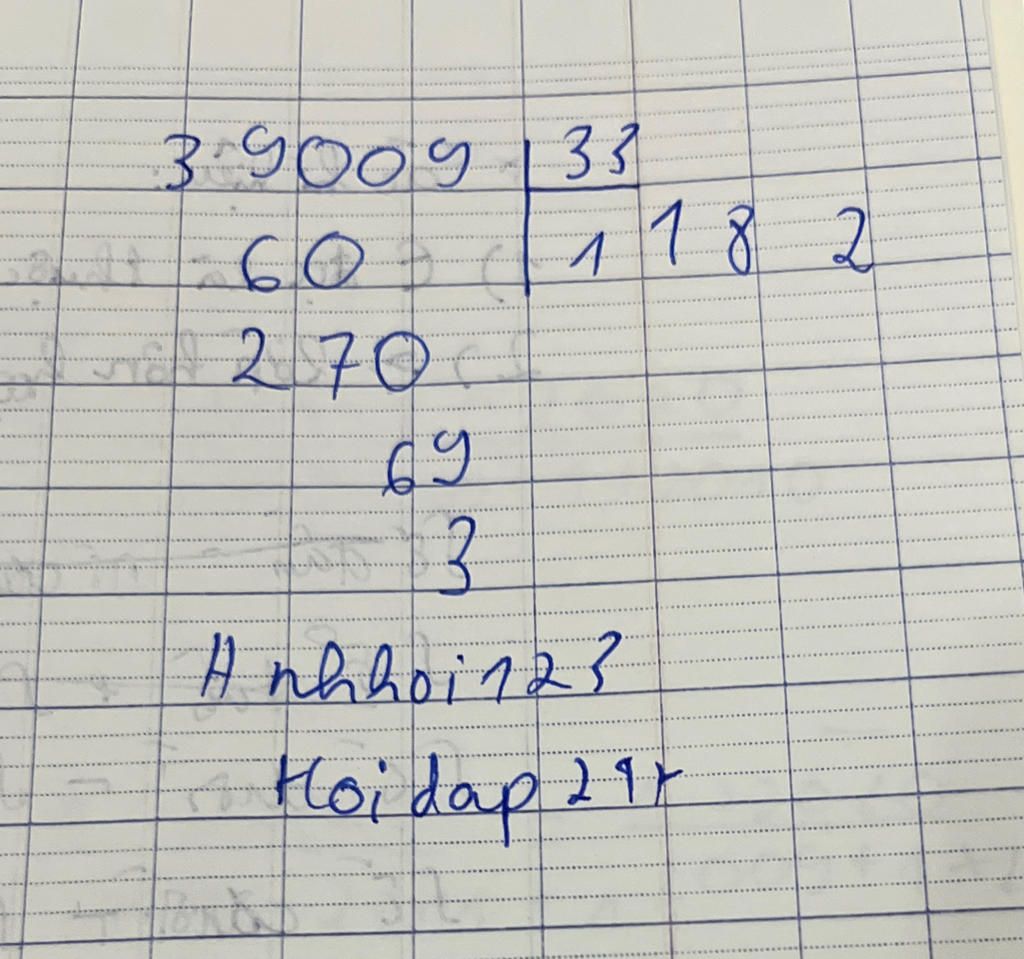 39009 33
60 1182
270
69
3
Anhhoi123
Hoidap